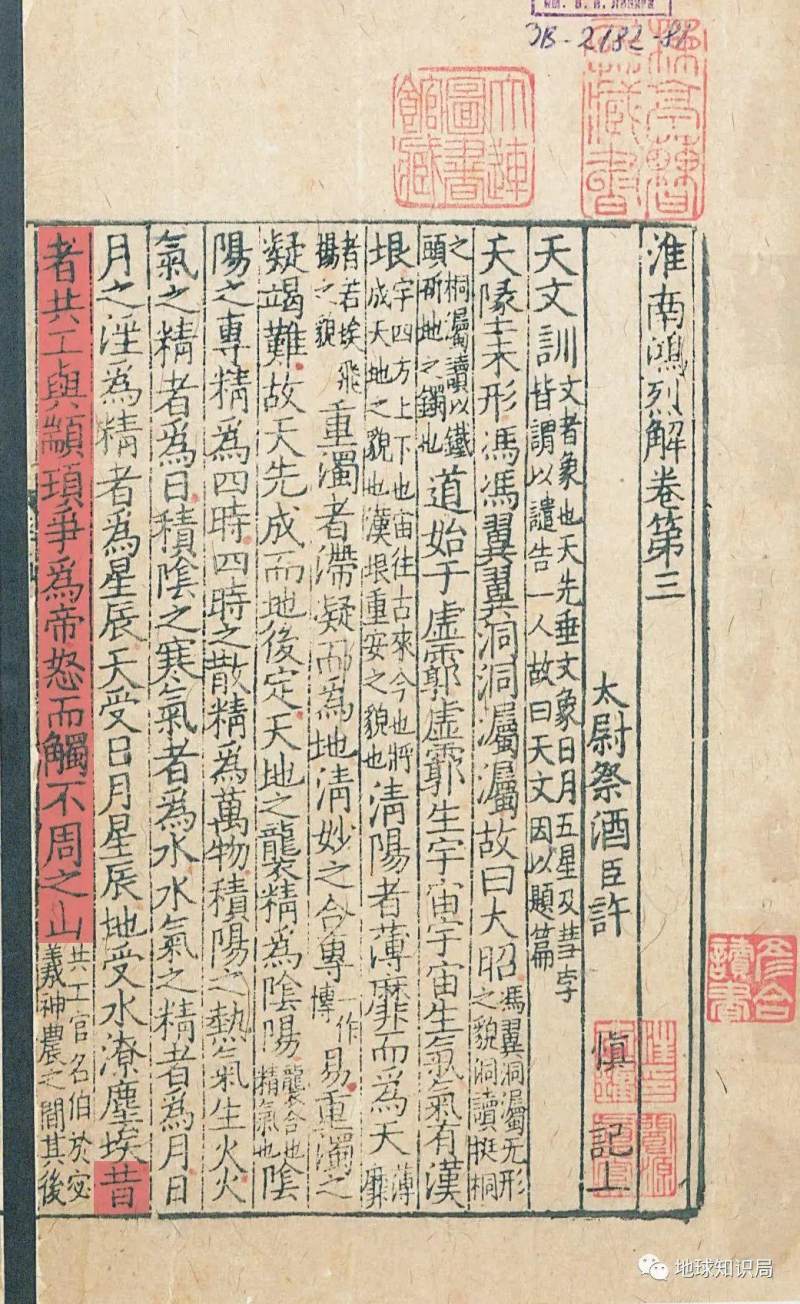 大連圖書館藏
淮南鴻烈解卷第三
太尉祭酒臣許 慎 記上
天文訓 文者象也天先垂文象日月五星及彗孛 皆謂以譴告一人故曰天文因以題篇
天墬未形馮馮翼翼洞洞灟灟故曰大昭 馮翼洞灟无形 之貌洞讀挺桐
之桐灟讀以鐵 頭斫地之鐲也 道始于虛霩虛霩生宇宙宇宙生氣氣有漢
垠 宇四方上下也宙往古來今也將 成天地之貌也漢垠重安之貌也 清陽者薄靡而為天 薄 靡
者若埃飛 揚之貌 重濁者滯凝而為地清妙之合專 一作 愽 易重濁之
凝竭難故天先成而地後定天地之襲精為陰陽 襲合也 精氣也 陰
陽之專精為四時四時之散精為萬物積陽之熱氣生火火
氣之精者爲日積陰之寒氣者為水水氣之精者為月日
月之淫為精者為星辰天受日月星辰地受水潦塵埃昔
者共工與顓頊爭為帝怒而觸不周之山 共工官名伯於宓 羲神農之間其後
彥合讀書
地球知识局